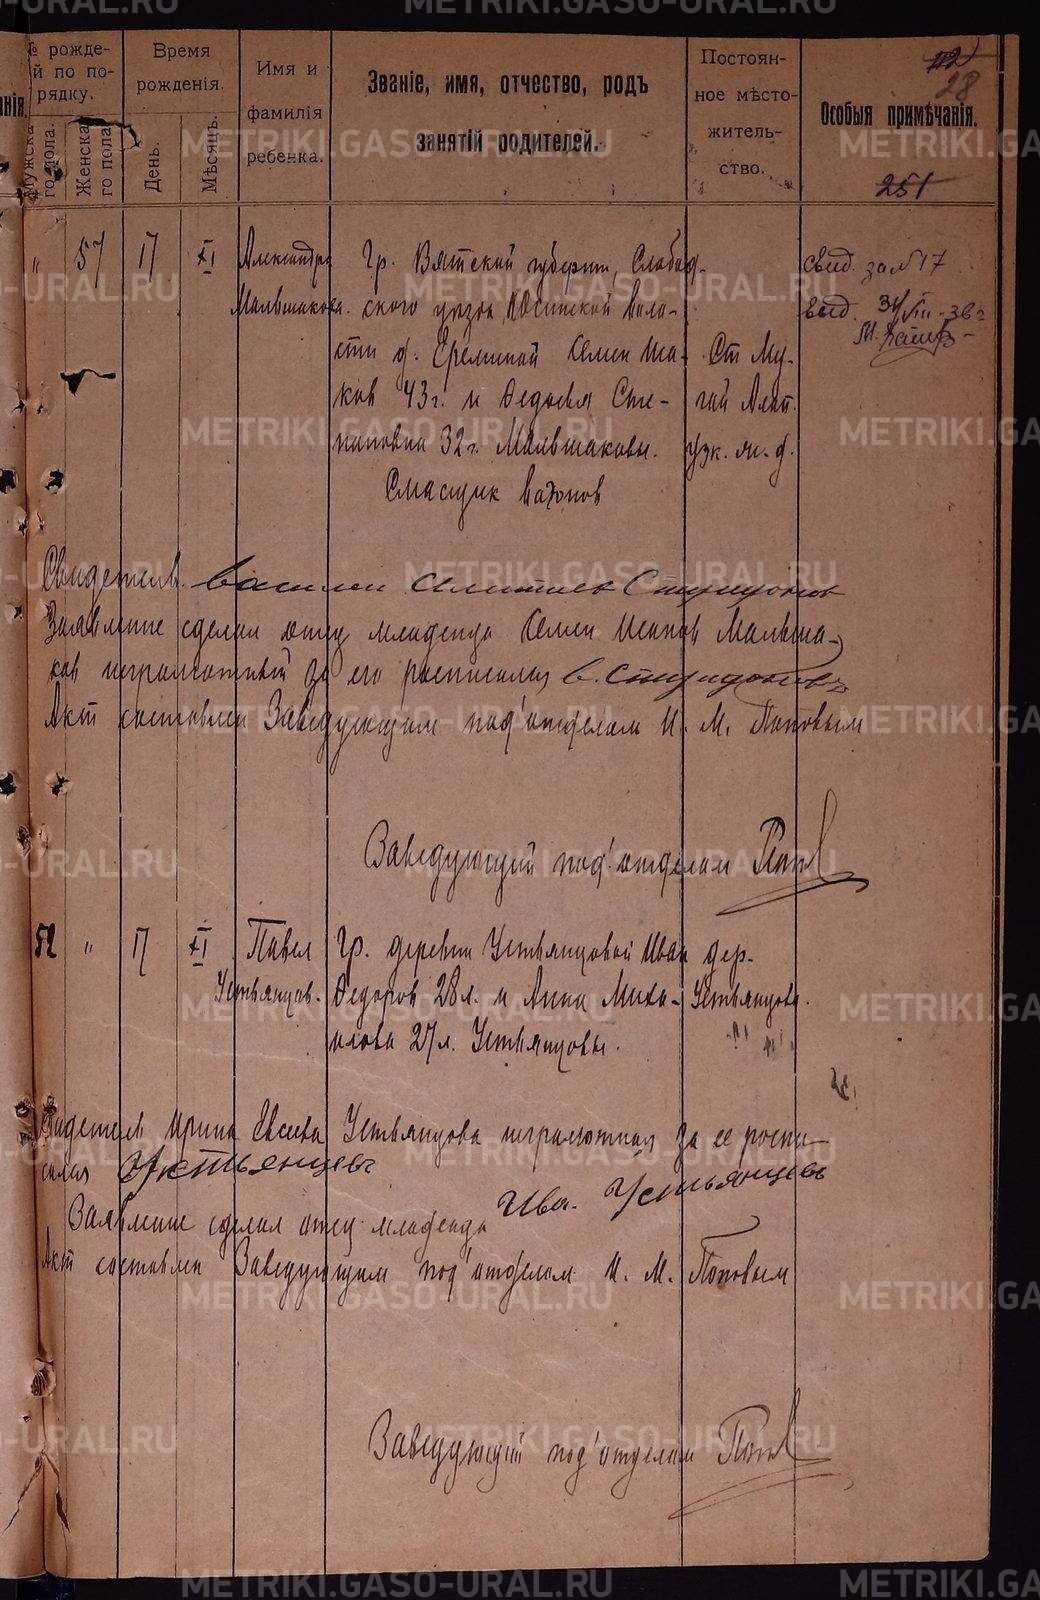 № рожде-
й по по-
рядку.
Мужска
го пола.
Женска
го пола
Время
рожденія.
День.
Мѣсяцъ.
Имя и
фамилія
ребенка.
Званіе, имя, отчество, родъ
занятій родителей.
Постоян-
ное мѣсто-
житель-
ство.
Особыя примѣчанія.
112
28
251
„ 57 17 XI
Александра
Малышакова.
Гр. Вятской губерніи, Слобод-
ского уезда, волос-
сти д. Ереминой Семен Иса-
ков 43 г. и Федосья Сте-
пановна 32 г. Малышаковы.
Смасщик вагонов
Ст Му-
гай Алап.
уез. ж. д.
свид. за № 17
выд. 31/VIII-36 г
Свидетель Василий Спиридонов
Заявление сделал отец младенца Семен Исаков Малыша-
ков неграмотный за его росписался В. Спиридонов
Акт составлен Заведующим под'отделом И. М. Поповым
Заведующий под'отделом Попов
52 „ 17 XI
Павел
Устьянцов.
Гр. деревни Устьянцовой Иван
Федоров 28 л. и Анна Миха-
илова 27 л. Устьянцовы.
дер.
Устьянцова.
Свидетель Ирина Евсеева Устьянцова неграмотная за ее роспи-
сался Устьянцевъ
Заявление сделал отец младенца Ива. Устьянцевъ
Акт составлен Заведующим под'отделом И. М. Поповым
Заведующий под'отделом Попов
METRIKI.GASO-URAL.RU